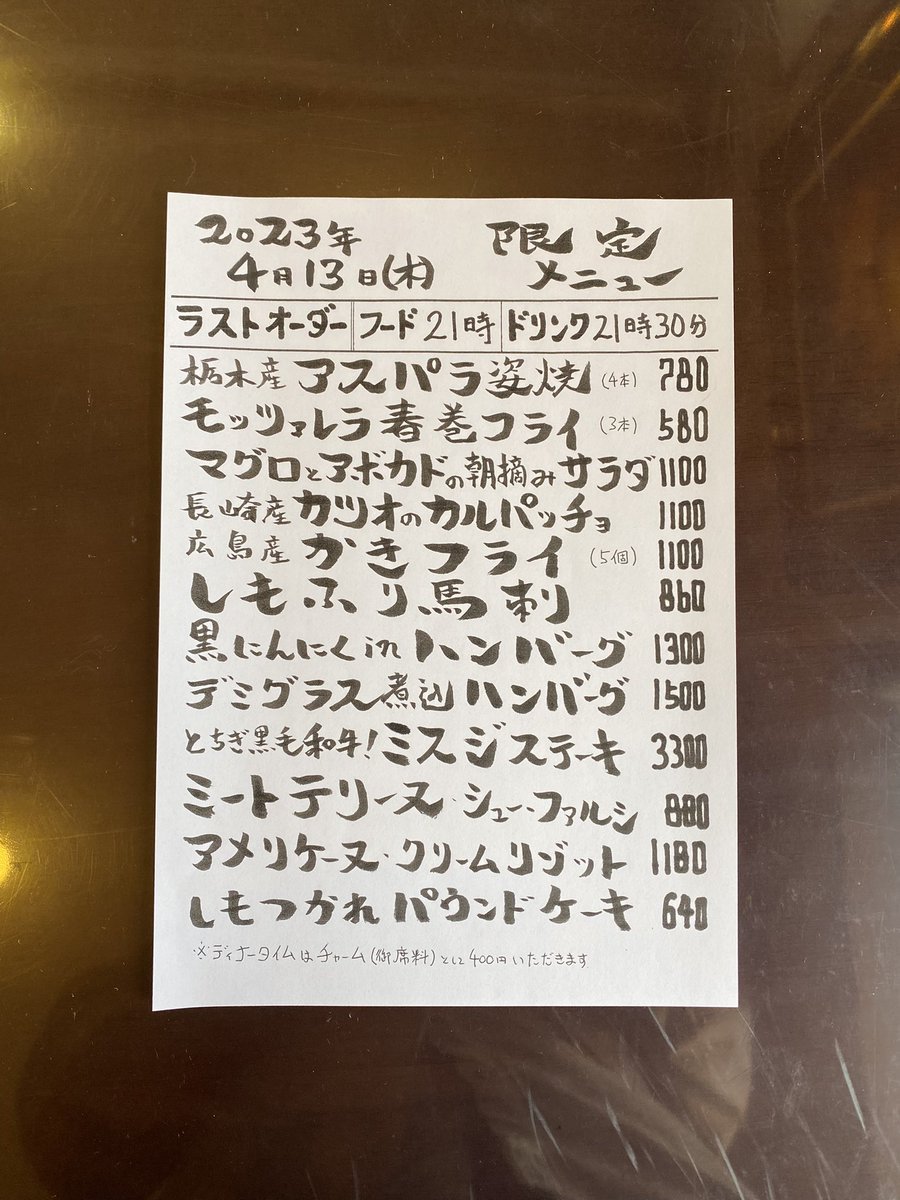 2023年 限定
4月13日(木) メニュー
ラストオーダー フード21時 ドリンク21時30分
栃木産 アスパラ姿焼 (4本) 780
モッツァレラ春巻フライ (3本) 580
マグロとアボカドの朝摘みサラダ 1100
長崎産 カツオのカルパッチョ 1100
広島産 かきフライ (5個) 1100
しもふり馬刺 860
黒にんにくinハンバーグ 1300
デミグラス煮込ハンバーグ 1500
とちぎ黒毛和牛!ミスジステーキ 3300
ミートテリーヌ・シュー・ファルシ 880
アメリケーヌ・クリームリゾット 1180
しもつかれパウンドケーキ 640
※ディナータイムはチャーム(御席料)として400円いただきます